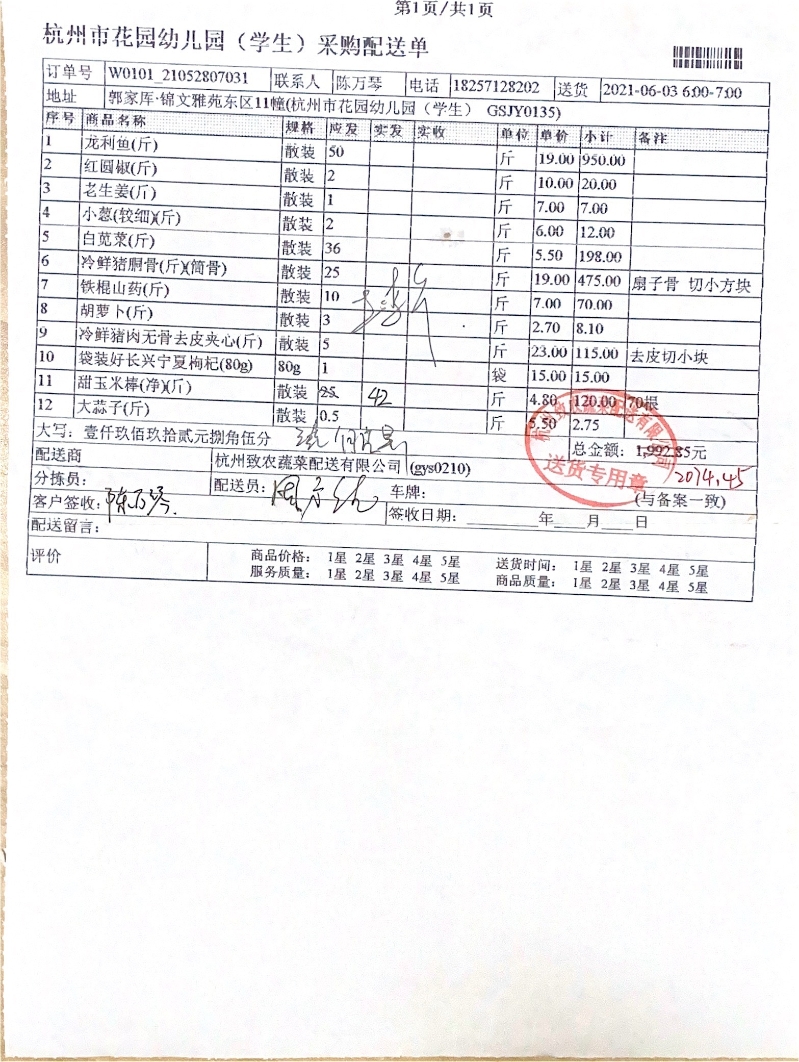 第1页/共1页
杭州市花园幼儿园（学生）采购配送单
订单号 W0101_21052807031 联系人 陈万琴 电话 18257128202 送货 2021-06-03 6:00-7:00
地址 郭家厍·锦文雅苑东区11幢(杭州市花园幼儿园（学生） GSJY0135)
序号 商品名称 规格 应发 实发 实收 单位 单价 小计 备注
1 龙利鱼(斤) 散装 50 斤 19.00 950.00
2 红圆椒(斤) 散装 2 斤 10.00 20.00
3 老生姜(斤) 散装 1 斤 7.00 7.00
4 小葱(较细)(斤) 散装 2 斤 6.00 12.00
5 白苋菜(斤) 散装 36 斤 5.50 198.00
6 冷鲜猪胴骨(斤)(筒骨) 散装 25 斤 19.00 475.00 扇子骨 切小方块
7 铁棍山药(斤) 散装 10 斤 7.00 70.00
8 胡萝卜(斤) 散装 3 斤 2.70 8.10
9 冷鲜猪肉无骨去皮夹心(斤) 散装 5 斤 23.00 115.00 去皮切小块
10 袋装好长兴宁夏枸杞(80g) 80g 1 袋 15.00 15.00
11 甜玉米棒(净)(斤) 散装 25 42 斤 4.80 120.00 70根
12 大蒜子(斤) 散装 0.5 斤 5.50 2.75
大写：壹仟玖佰玖拾贰元捌角伍分 总金额：1,992.85元
2074.45
配送商 杭州致农蔬菜配送有限公司 (gys0210)
杭州致农蔬菜配送有限公司
送货专用章
(与备案一致)
分拣员： 配送员： 车牌：
客户签收：陈万琴 签收日期：________年____月____日
配送留言：
评价 商品价格： 1星 2星 3星 4星 5星 送货时间： 1星 2星 3星 4星 5星
服务质量： 1星 2星 3星 4星 5星 商品质量： 1星 2星 3星 4星 5星